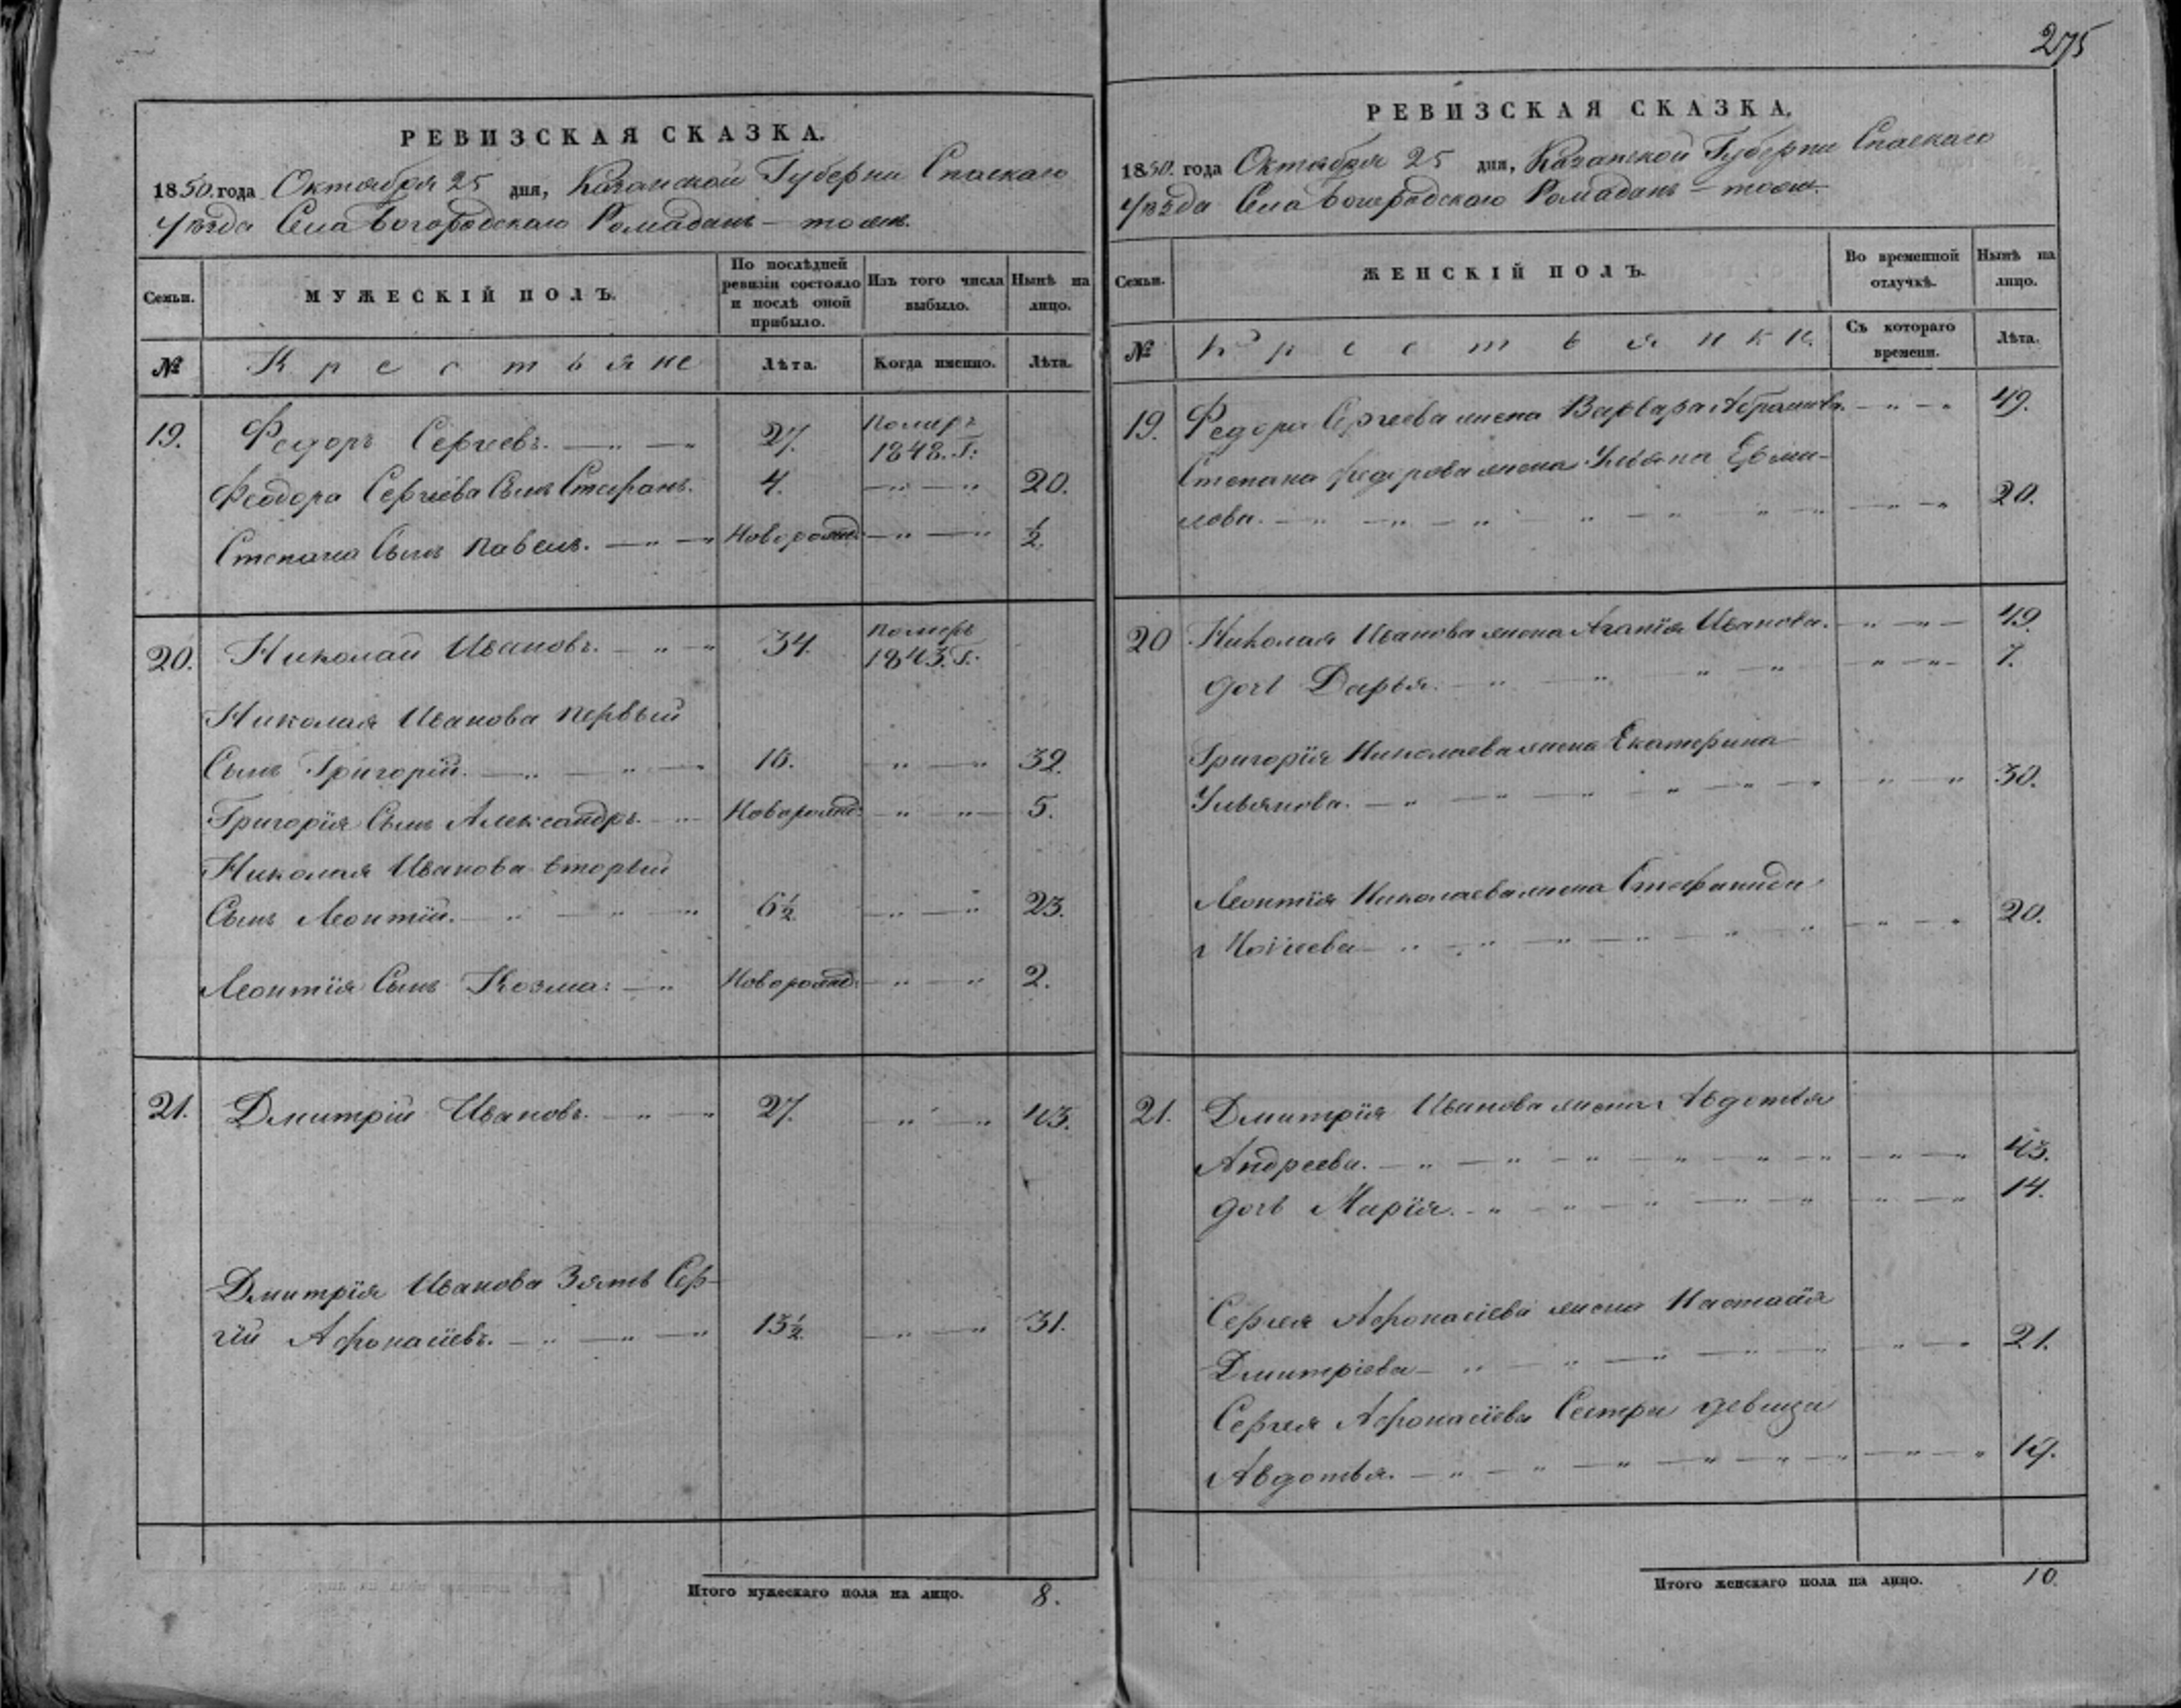 275
РЕВИЗСКАЯ СКАЗКА.
1850. года Октября 25 дня, Казанской Губерни Спаскаго
уѣзда Села Богородскаго Ромадань тожъ.
Семьи.
МУЖЕСКІЙ ПОЛЪ.
По послѣдней ревизіи состояло и послѣ оной прибыло.
Изъ того числа выбыло.
Нынѣ на лицо.
№
Крестьяне
Лѣта.
Когда именно.
Лѣта.
19. Федоръ Сергеевъ. — „ — 27. Померъ 1848. Г:
Феодора Сергіева Сынъ Стефанъ. 4. — „ — „ 20.
Степана Сынъ Павелъ. — „ — „ Новорожд: — „ — „ ½.
20. Николай Ивановъ. — „ — „ 34. Померъ 1843. Г:
Николая Иванова первый
Сынъ Григорій. — „ — „ — 16. „ — „ 32.
Григорія Сынъ Александръ. — „ Новорожд: — „ — „ — 5.
Николая Иванова вторый
Сынъ Леонтій. — „ — „ — „ 6½ — „ — „ 23.
Леонтія Сынъ Козма: — „ Новорожд: — „ — „ 2.
21. Дмитрій Ивановъ. — „ — „ 27. — „ — „ 43.
Дмитрія Иванова Зять Сер-
гій Афонасіевъ. — „ — „ — „ 13½ — „ — „ 31.
Итого мужескаго пола на лицо. 8.
РЕВИЗСКАЯ СКАЗКА.
1850. года Октября 25 дня, Казанской Губерни Спаскаго
уѣзда Села Богородскаго Ромадань — тожъ.
Семьи.
ЖЕНСКІЙ ПОЛЪ.
Во временной отлучкѣ.
Нынѣ на лицо.
№
Крестьянки.
Съ котораго времени.
Лѣта.
19. Федора Сергеева жена Варвара Абрамова. — „ — „ 49.
Степана Федорова жена Ульяна Ефми-
лова. — „ — „ — „ — „ 20.
20 Николая Иванова жена Агапія Иванова. — „ — „ — 49.
дочь Дарья. — „ — „ — „ — „ 7.
Григорія Николаева жена Екатерина
Ульянова. — „ — „ — „ — „ 30.
Леонтія Николаева жена Стефанида
Моисеева — „ — „ — „ — „ 20.
21. Дмитрія Иванова жена Авдотья
Андреева. — „ — „ — „ — „ 43.
дочь Марія. — „ — „ — „ — „ 14.
Сергея Афонасіева жена Настасія
Дмитріева — „ — „ — „ — „ 21.
Сергея Афонасіева Сестра девица
Авдотья. — „ — „ — „ — „ 19.
Итого женскаго пола на лицо. 10.